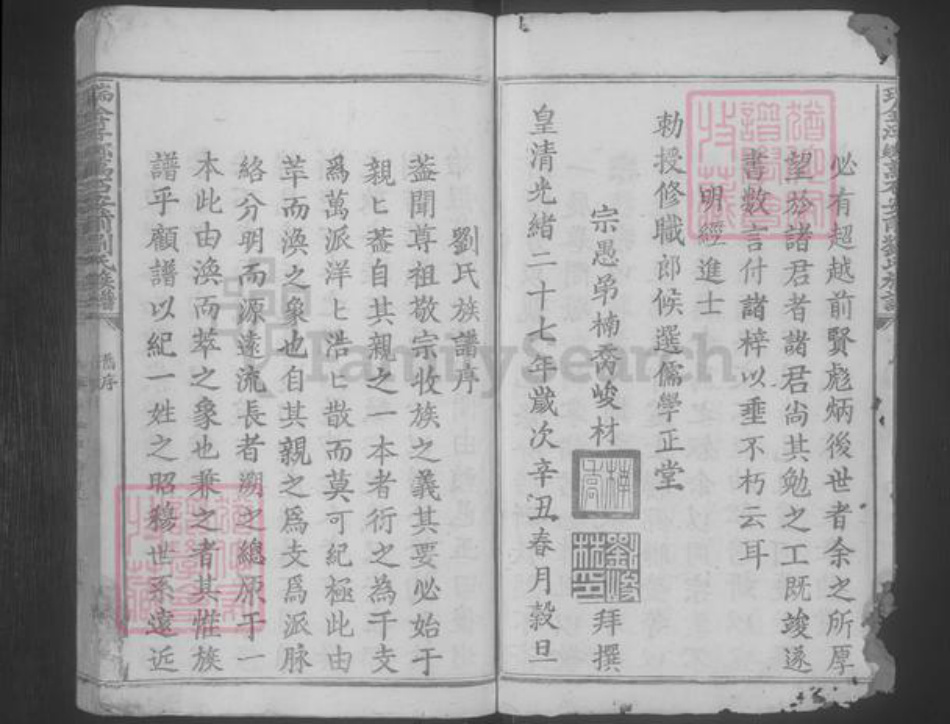 必有超越前賢彪炳後世者余之所厚
望於諸君者諸君尚其勉之工既竣遂
書數言付諸梓以垂不朽云耳
明經進士
勅授修職郎候選儒學正堂
宗愚弟楠喬峻材拜撰
皇清光緒二十七年歲次辛丑春月穀旦
劉氏族譜序
葢聞尊祖敬宗收族之義其要必始于
親匕葢自其親之一本者衍之為千支
爲萬派洋匕浩匕散而莫可紀極此由
萃而渙之象也自其親之爲支爲派脉
絡分明而源遠流長者溯之總原于一
本此由渙而萃之象也兼之者其惟族
譜乎顧譜以紀一姓之昭穆世系遠近
舊序
FamilySearch